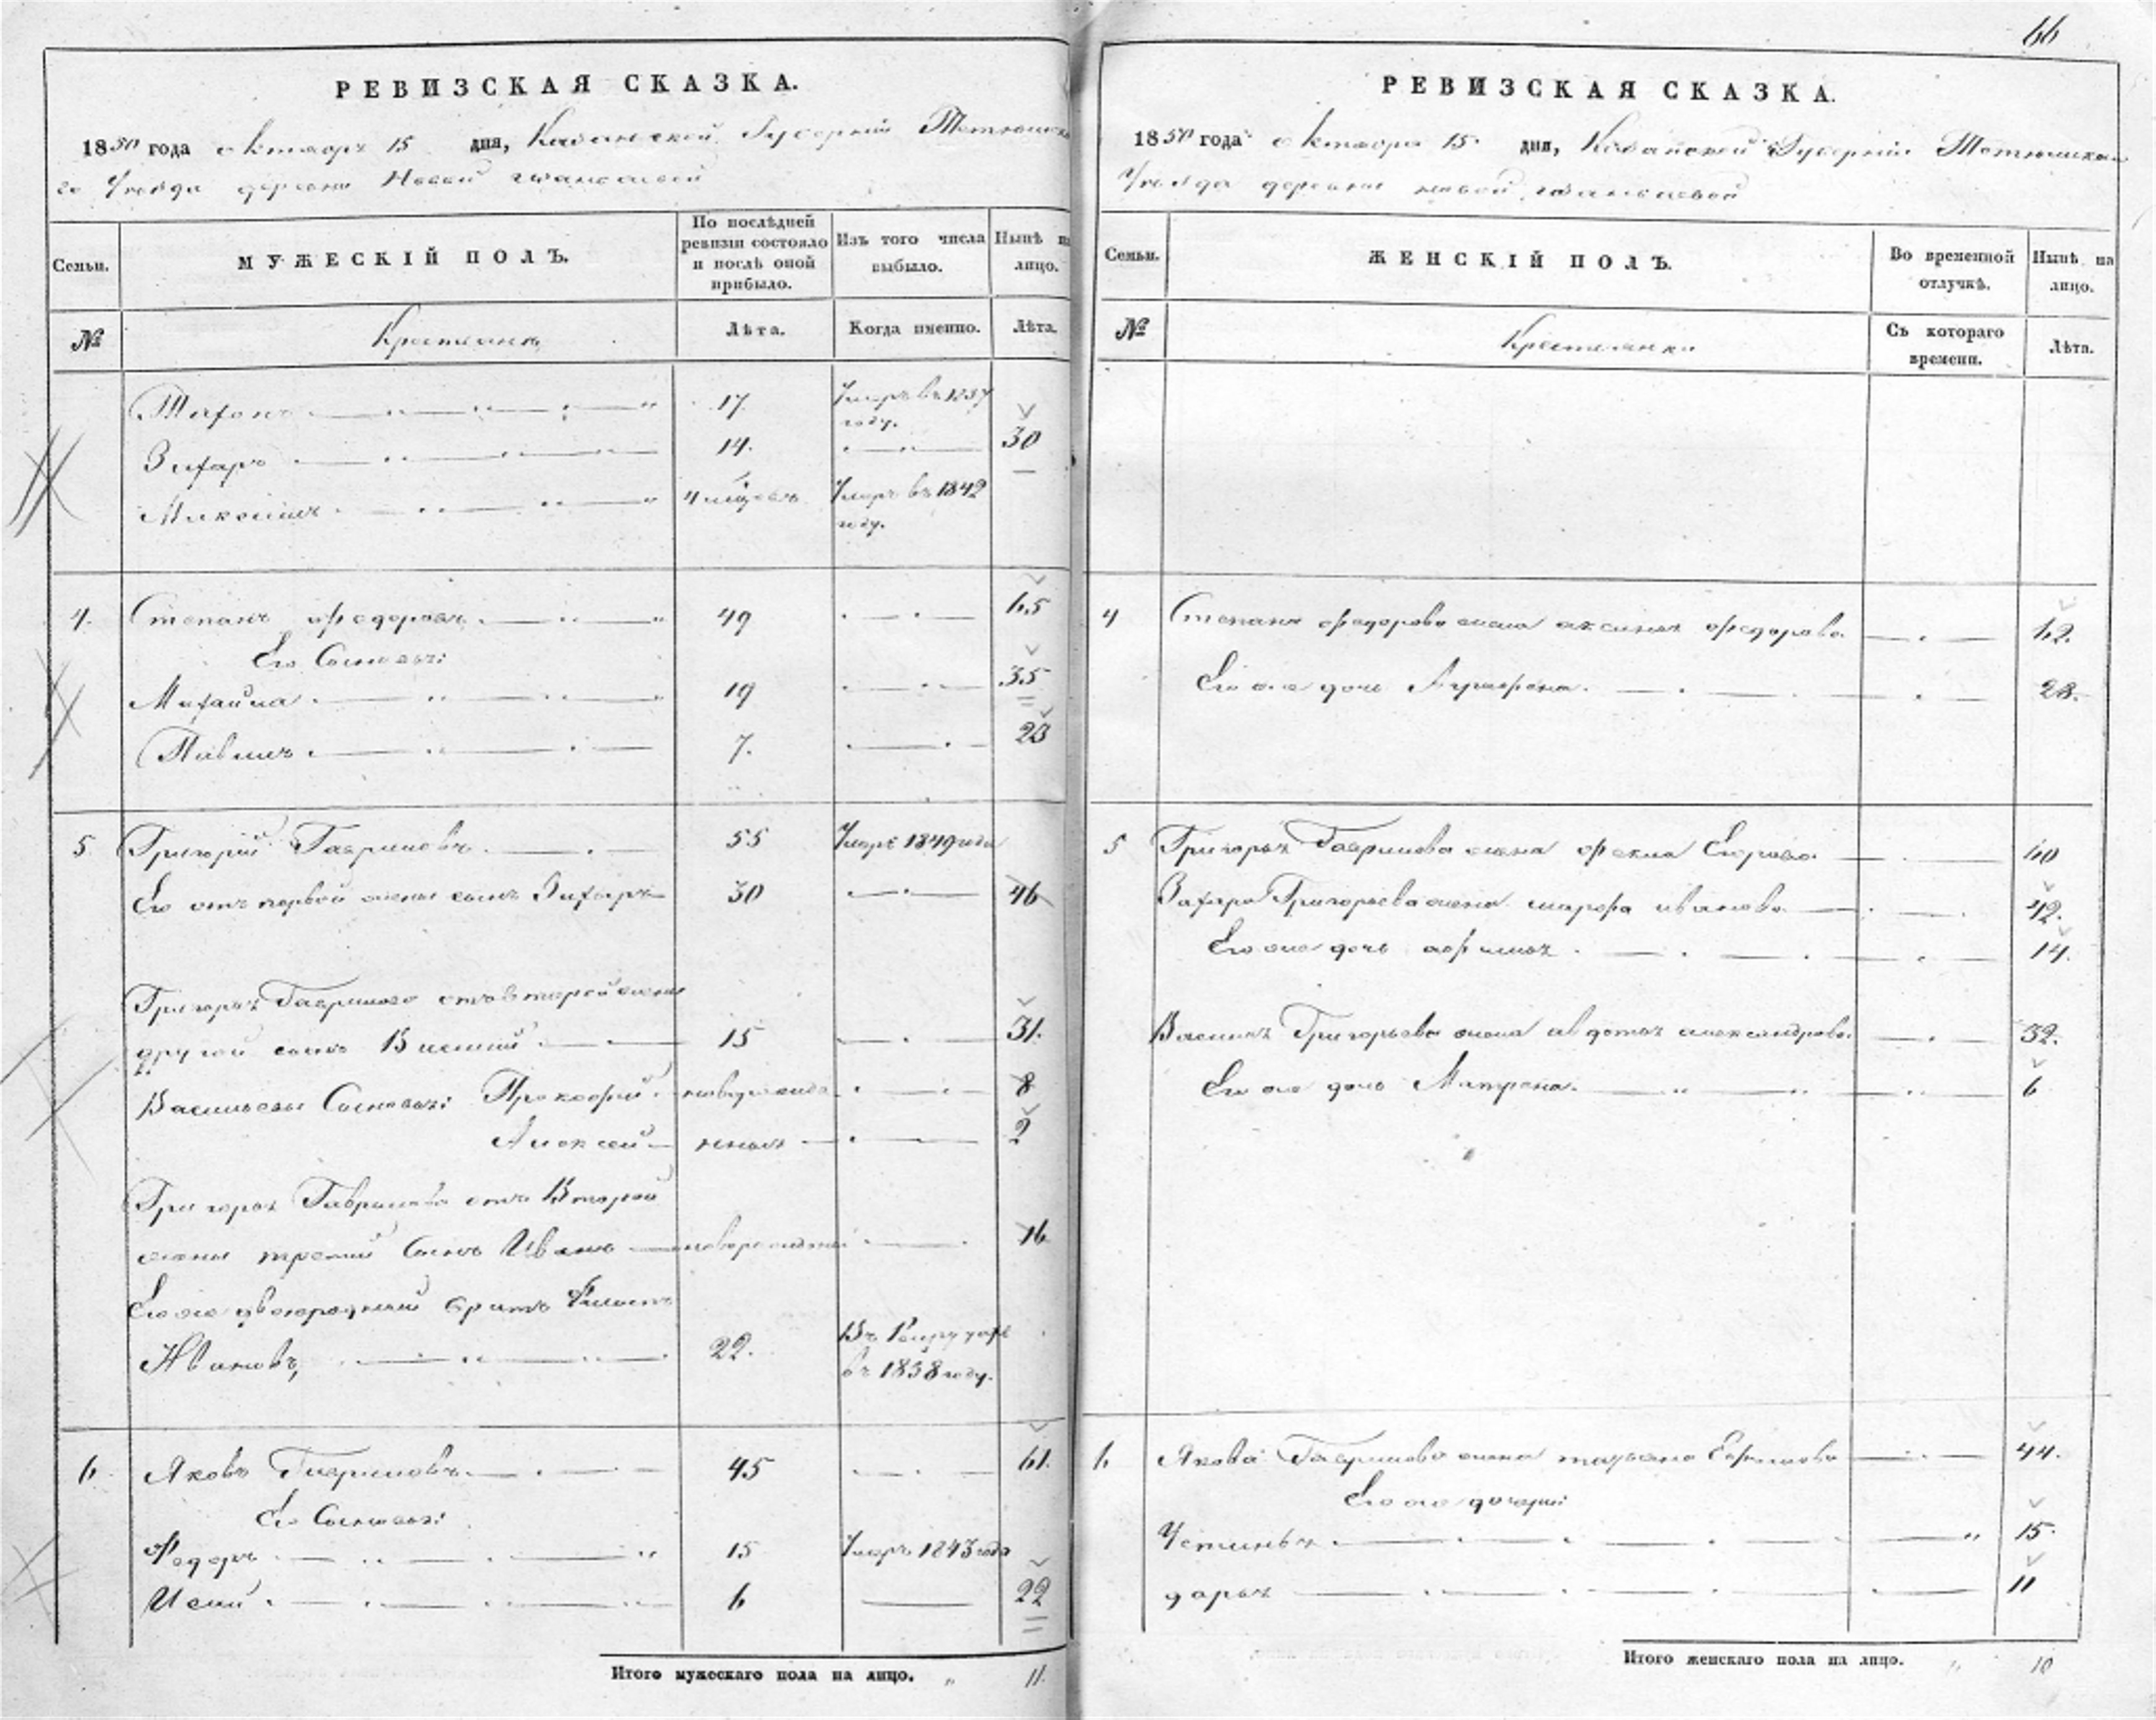 66
РЕВИЗСКАЯ СКАЗКА.
1850 года октября 15 дня, Казанской Губернии Тетюшска
го Уезда деревни Новой
Семьи.
МУЖЕСКІЙ ПОЛЪ.
По послѣдней ревизіи состояло и послѣ оной прибыло.
Изъ того числа выбыло.
Нынѣ на лицо.
№
Крестьяне
Лѣта.
Когда именно.
Лѣта.
17. Умеръ въ 1837 году.
Захаръ 14. 30
Умеръ въ 1842 году.
4. Степанъ Федоровъ 49 65
Его Сыновья:
Михайла 19 35
Павелъ 7. 23
5 Григорій Гавриловъ 55 Умеръ 1849 года
Его отъ первой жены сынъ Захаръ 30 46
Григорья Гаврилова отъ второй жены
другой сынъ Василий 15 31.
Васильевы Сыновья: Прокофий 8
Алексей 2
Григорья Гаврилова отъ второй
жены третий Сынъ Иванъ новорожденный 16
Его же двоюродный братъ
Ивановъ, 22. Въ Рекруты въ 1838 году.
6 Яковъ Гавриловъ 45 61.
Его Сыновья:
Федоръ 15 Умеръ 1843 года
Исай 6 22
Итого мужескаго пола на лицо. 11.
РЕВИЗСКАЯ СКАЗКА.
1850 года октября 15 дня, Казанской Губернии Тетюшскаго
Уезда деревни новой
Семьи.
ЖЕНСКІЙ ПОЛЪ.
Во временной отлучкѣ.
Нынѣ на лицо.
№
Крестьянки
Съ котораго времени.
Лѣта.
4 Степана Федорова жена аксинья Федорова 62.
Его же дочь 28.
5 Григорья Гаврилова жена фекла Егорова 60
Захара Григорьева жена марфа иванова 42.
Его же дочь 14.
Василья Григорьева жена авдотья александрова 32.
Его же дочь Матрена. 6
6 Якова Гаврилова жена татьяна Ефимова 44.
Его же дочери:
Устинья 15.
дарья 11
Итого женскаго пола на лицо. 10